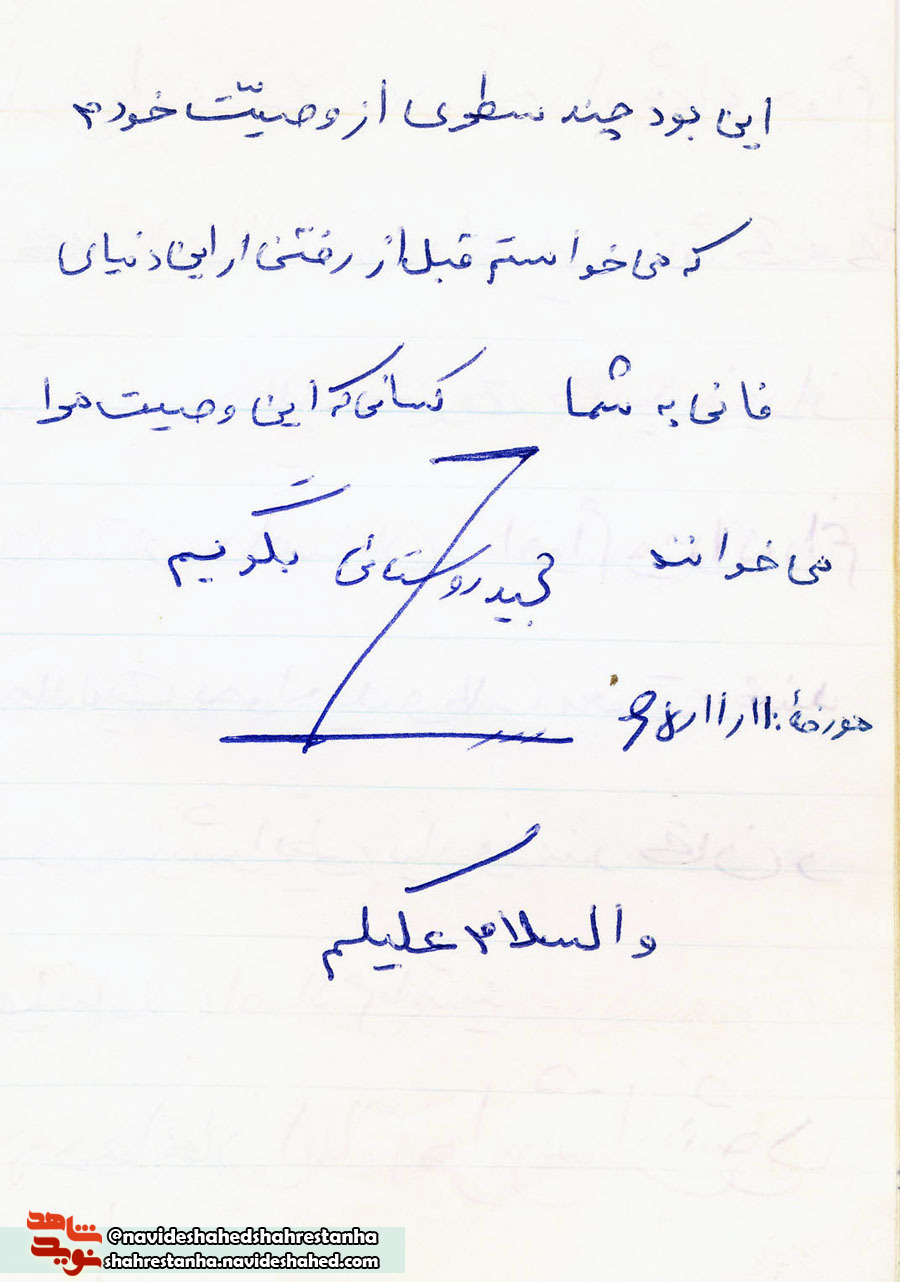 این بود چند سطری از وصیّت خودم
که می خواستم قبل از رفتن از این دنیای
فانی به شما کسانی که این وصیت مرا
می خوانند بگویم
مجید روستائی
مورخهٔ: ۱۱ر۱۱ر
والسلام علیکم
شاهد
نوید
@navideshahedshahrestanha
shahrestanha.navideshahed.com